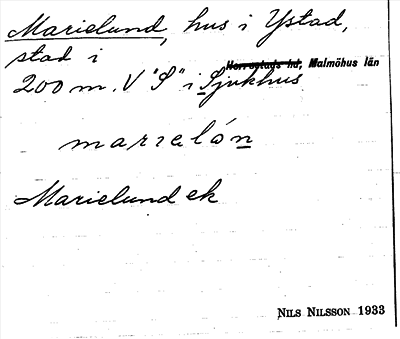 Marielund, hus i Ystad,
stad i
Herrestads hd, Malmöhus län
200 m. V "S" i Sjukhus
marielón
Marielund ek
NILS NILSSON 1933